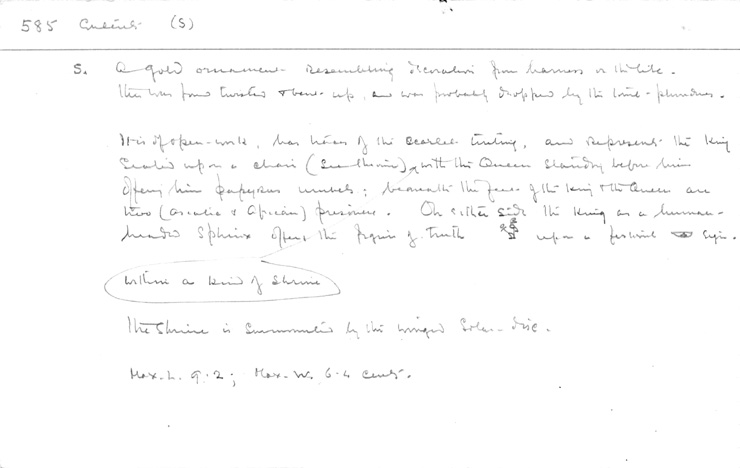 585 Contents (S)
S. A gold ornament - resembling decoration from harness or the like.
This was found twisted & bent - up, and was probably dropped by the tomb - plunderers.
It is of open-work, has traces of the scarlet tinting, and represents the King
seated upon a chair (see throne), with the Queen standing before him
offering him papyrus umbels; beneath the feet of the King & the Queen are
two (Asiatic & African) prisoners. On either side the King as a human-
headed Sphinx offers the figure of truth upon a festival sign.
within a kind of shrine
The shrine is surmounted by the winged Solar-disc.
Max. L. 9.2; Max. W. 6.4 cents.